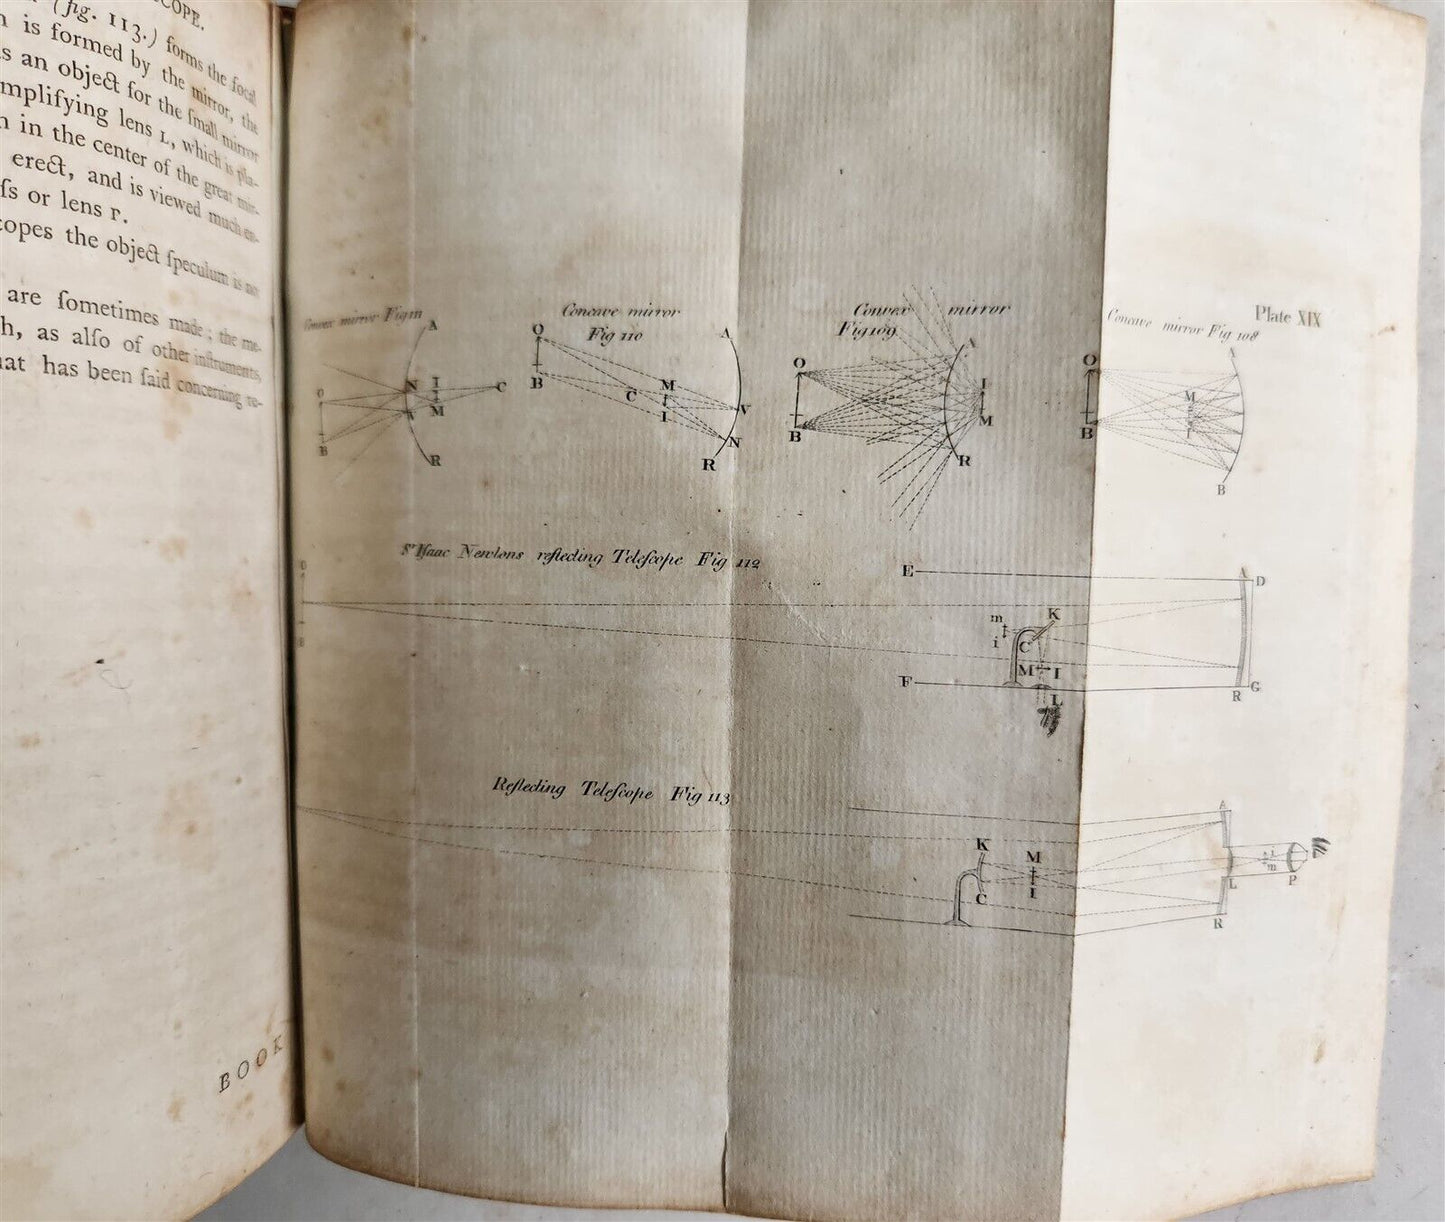 SCOPE.
(fig. 113.) forms the focal
n is formed by the mirror, the
s an object for the ſmall mirror
mplifying lens L, which is pla-
n in the center of the great mir-
erect, and is viewed much en-
ſs or lens P.
copes the object ſpeculum is not
are ſometimes made; the me-
h, as alſo of other inſtruments,
hat has been ſaid concerning re-
BOOK
Plate XIX
Convex mirror Fig 111
A
O
B
N
V
I
M
C
R
Concave mirror
Fig 110
O
B
C
M
I
A
V
N
R
Convex mirror
Fig 109
O
B
A
I
M
R
Concave mirror Fig 108
O
B
M
I
A
B
Sr Iſaac Newtons reflecting Teleſcope Fig 112
O
B
E
F
m
i
K
C
M I
L
A D
R G
Reflecting Teleſcope Fig 113
K
C
M
I
A
R
L
i
m
P